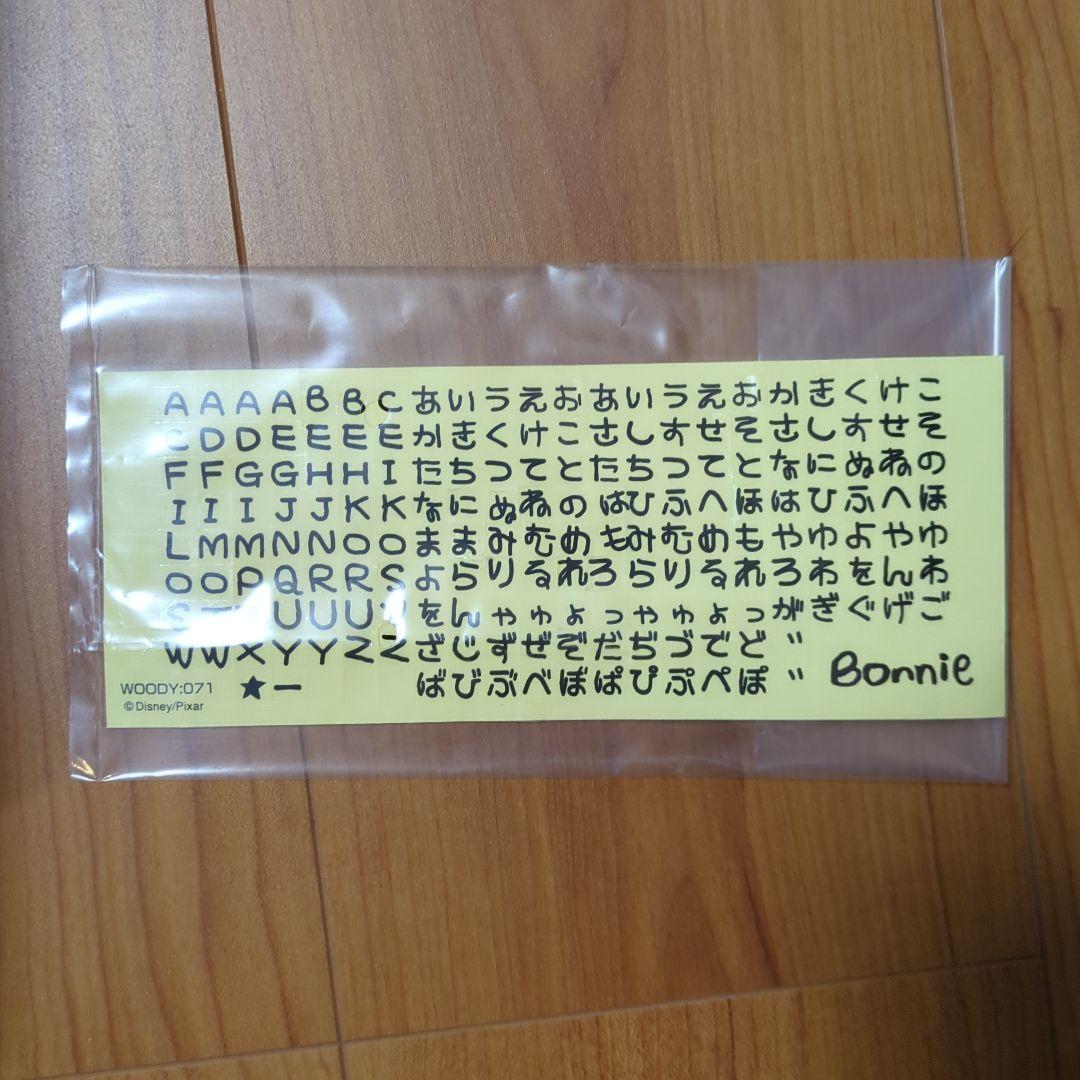 A A A A B B C あ い う え お あ い う え お か き く け こ
C D D E E E E か き く け こ さ し す せ そ さ し す せ そ
F F G G H H I た ち つ て と た ち つ て と な に ぬ ね の
I I I J J K K な に ぬ ね の は ひ ふ へ ほ は ひ ふ へ ほ
L M M N N O O ま ま み む め も み む め も や ゆ よ や ゆ
O O P Q R R S よ ら り る れ ろ ら り る れ ろ わ を ん わ
S T U U U を ん ゃ ゅ ょ っ ゃ ゅ ょ っ が ぎ ぐ げ ご
W W X Y Y Z Z ざ じ ず ぜ ぞ だ ぢ づ で ど "
ば び ぶ べ ぼ ぱ ぴ ぷ ぺ ぽ "
Bonnie
WOODY:071 ★ ー
©Disney/Pixar